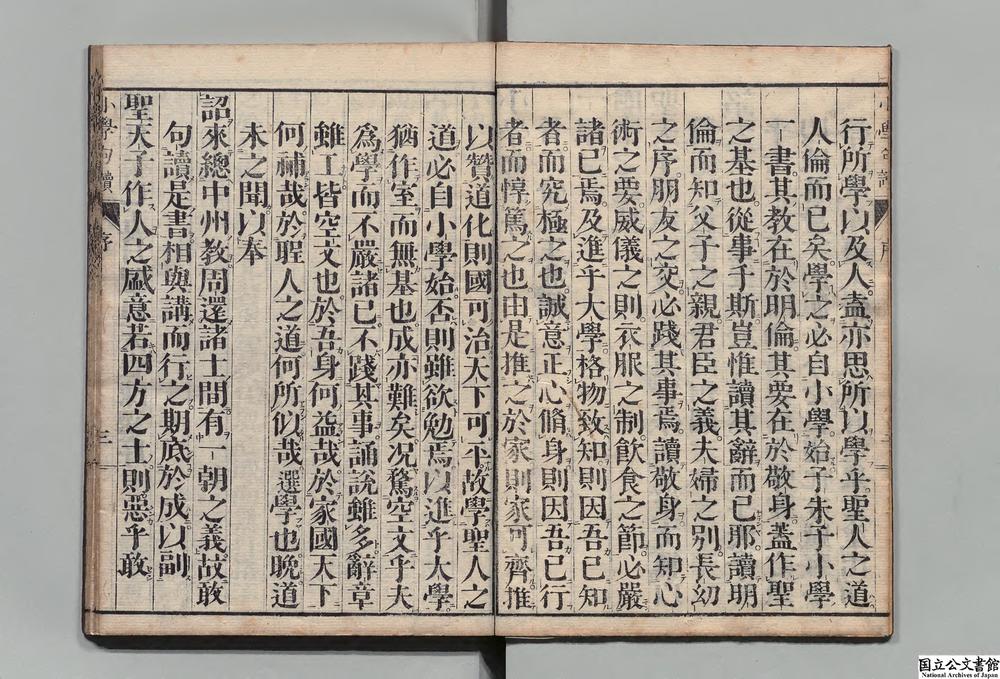 行所學以及人蓋亦思所以學乎聖人之道
人倫而已矣學之必自小學始子朱子小學
一書其教在於明倫其要在於敬身蓋作聖
之基也從事于斯豈惟讀其辭而已耶讀明
倫而知父子之親君臣之義夫婦之別長幼
之序朋友之交必踐其事焉讀敬身而知心
術之要威儀之則衣服之制飲食之節必嚴
諸已焉及進乎大學格物致知則因吾已知
者而究極之也誠意正心脩身則因吾已行
者而惇篤之也由是推之於家則家可齊推
以贊道化則國可治天下可平故學聖人之
道必自小學始否則雖欲勉焉以進乎大學
猶作室而無基也成亦難矣况騖空文乎夫
爲學而不嚴諸已不踐其事誦說雖多辭章
雖工皆空文也於吾身何益哉於家國天下
何補哉於聖人之道何所似哉選學也晚道
未之聞以奉
詔來總中州教周還諸士間有一朝之義故敢
句讀是書相與講而行之期底於成以副
聖天子作人之盛意若四方之士則惡乎敢
小學句讀 序 三
国立公文書館
National Archives of Japan